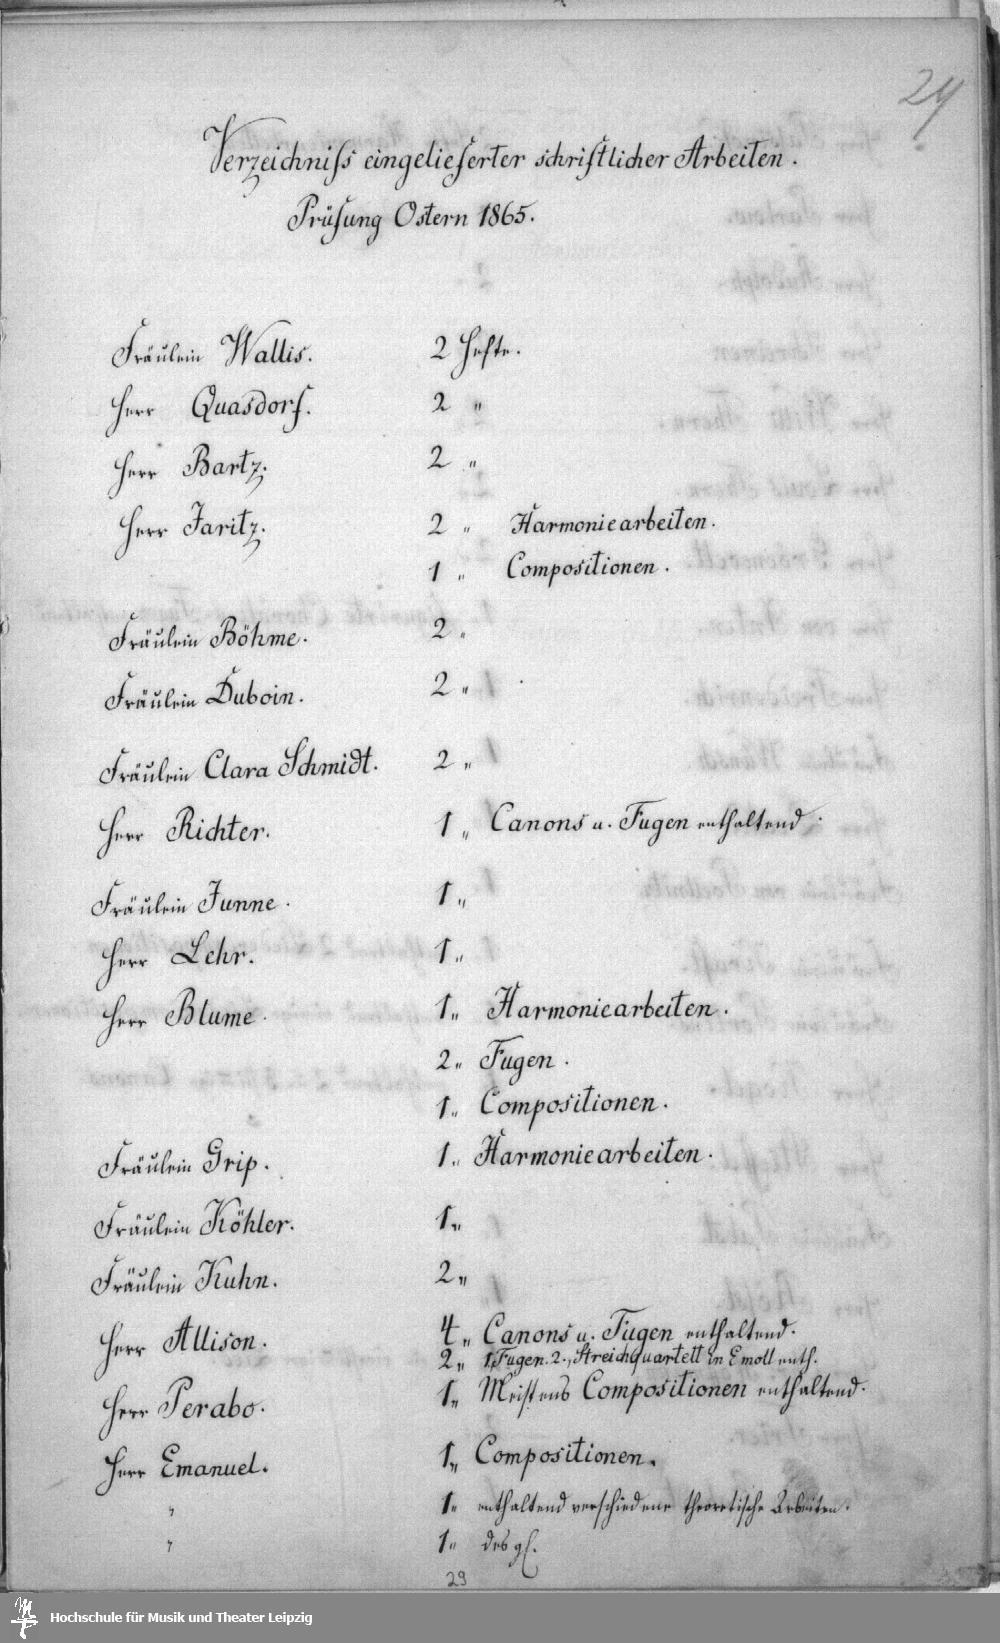 24
Verzeichniss eingelieferter schriftlicher Arbeiten.
Prüfung Ostern 1865.
Fräulein Wallis. 2 Hefte.
Herr Quasdorf. 2 "
Herr Bartz. 2 "
Herr Jaritz. 2 " Harmoniearbeiten.
1 " Compositionen.
Fräulein Böhme. 2 "
Fräulein Duboin. 2 "
Fräulein Clara Schmidt. 2 "
Herr Richter. 1 " Canons u. Fugen enthaltend.
Fräulein Junne. 1 "
Herr Lehr. 1 "
Herr Blume. 1 " Harmoniearbeiten.
2 " Fugen.
1 " Compositionen.
Fräulein Grip. 1 " Harmoniearbeiten.
Fräulein Köhler. 1 "
Fräulein Kuhn. 2 "
Herr Allison. 4 " Canons u. Fugen enthaltend.
2 " 1, Fugen. 2., Streichquartett in Emoll enth.
Herr Perabo. 1 " Meistens Compositionen enthaltend.
Herr Emanuel. 1 " Compositionen.
" 1 " enthaltend verschiedene theoretische Arbeiten.
" 1 " desgl.
29
Hochschule für Musik und Theater Leipzig